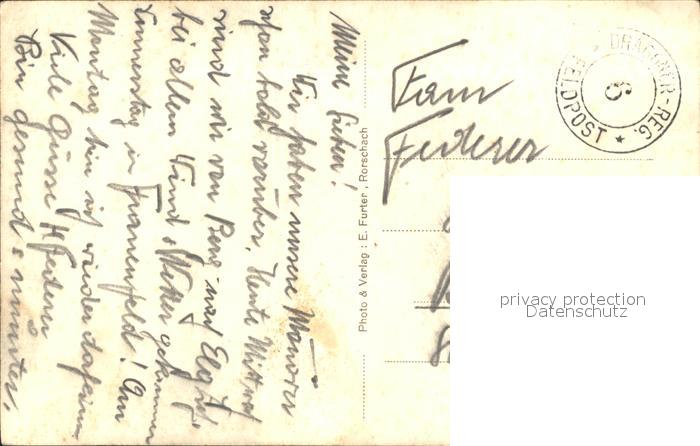 Meine Lieben!
Wir haben unsere Manöver
schon bald vorüber. Heute Mittwoch
sind wir von Berg nach Elgg
bei allem Wind & Wetter gekommen
Donnerstag in Frauenfeld! Am
Montag bin ich wieder daheim
Viele Grüsse H Federer
Bin gesund & munter.
Photo & Verlag : E. Furter, Rorschach
Fam
Federer
FELDPOST ★ DRAGONER-REG.
6
privacy protection
Datenschutz